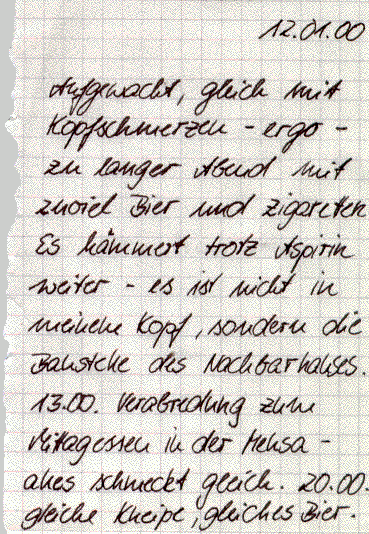 12.01.00
Aufgewacht, gleich mit
Kopfschmerzen - ergo -
zu langer Abend mit
zuviel Bier und Zigaretten
Es hämmert trotz Aspirin
weiter - es ist nicht in
meinem Kopf, sondern die
Baustelle des Nachbarhauses.
13.00. Verabredung zum
Mittagessen in der Mensa -
alles schmeckt gleich. 20.00.
gleiche Kneipe, gleiches Bier.